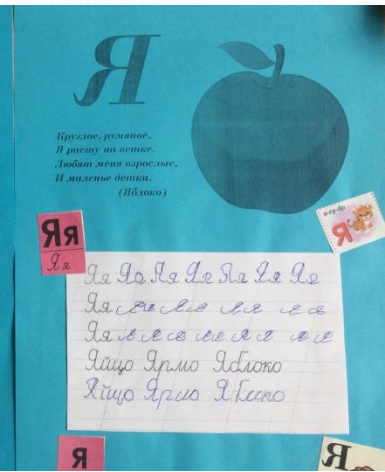 Я
Круглое, румяное,
Я расту на ветке.
Любят меня взрослые,
И маленье детки.
(Яблоко)
Яя
Яя
Я
Яя Яя Яя Яя Яя Яя Яя
Яя
Яя
Яйцо Ярмо Яблоко
Яйцо Ярмо
Я
Я